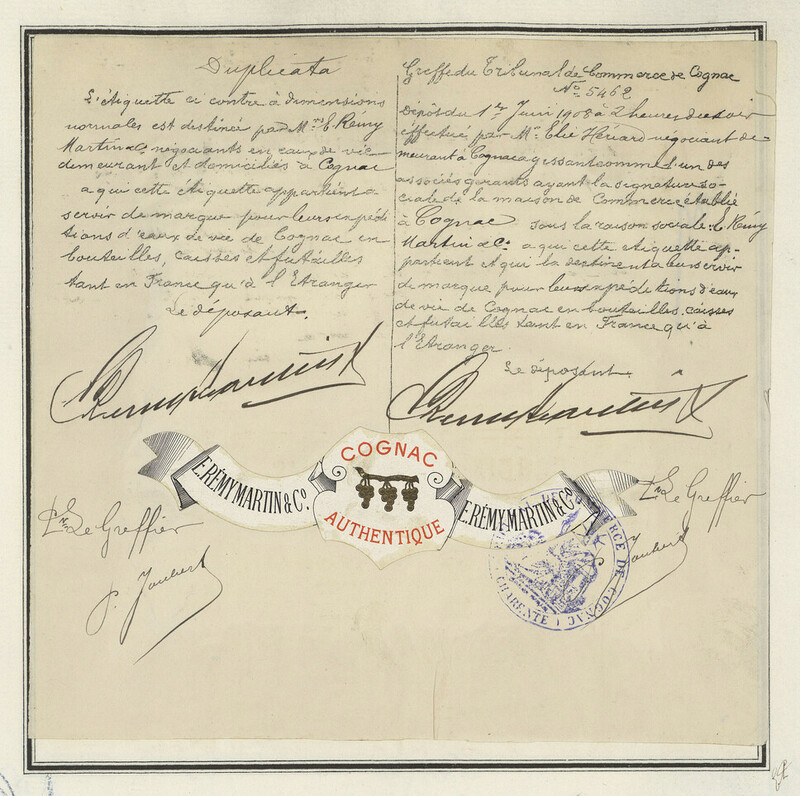 Duplicata
L'étiquette ci contre à dimensions
normales est destinée par Mrs E. Rémy
Martin & C. négociants en eaux de vie
demeurant et domiciliés à Cognac
a qui cette etiquette appartient a
servir de marque pour leurs expédi
tions d'eaux de vie de Cognac en
bouteilles, caisses et futailles
tant en France qu'à l'Etranger
Le déposant.
E. Remy Martin & C
Greffe du Tribunal de Commerce de Cognac
No 5462
Dépôt du 1er Juin 1908 à 2 heures du soir
effectué par Mr. Elie Hériard négociant de-
meurant à Cognac agissant comme l'un des
associés gérants ayant la signature so-
ciale de la maison de Commerce établie
à Cognac sous la raison sociale: E. Rémy
Martin & C. a qui cette etiquette ap-
partient et qui la destinent a leur servir
de marque pour leurs expéditions d'eaux
de vie de Cognac en bouteilles, caisses
et futailles tant en France qu'à
l'Etranger
Le déposant.
E. Remy Martin & C
E. RÉMY MARTIN & Co.
COGNAC
AUTHENTIQUE
E. RÉMY MARTIN & Co.
Le Greffier
Joubert
Le Greffier
Joubert
COMMERCE DE COGNAC
(CHARENTE)